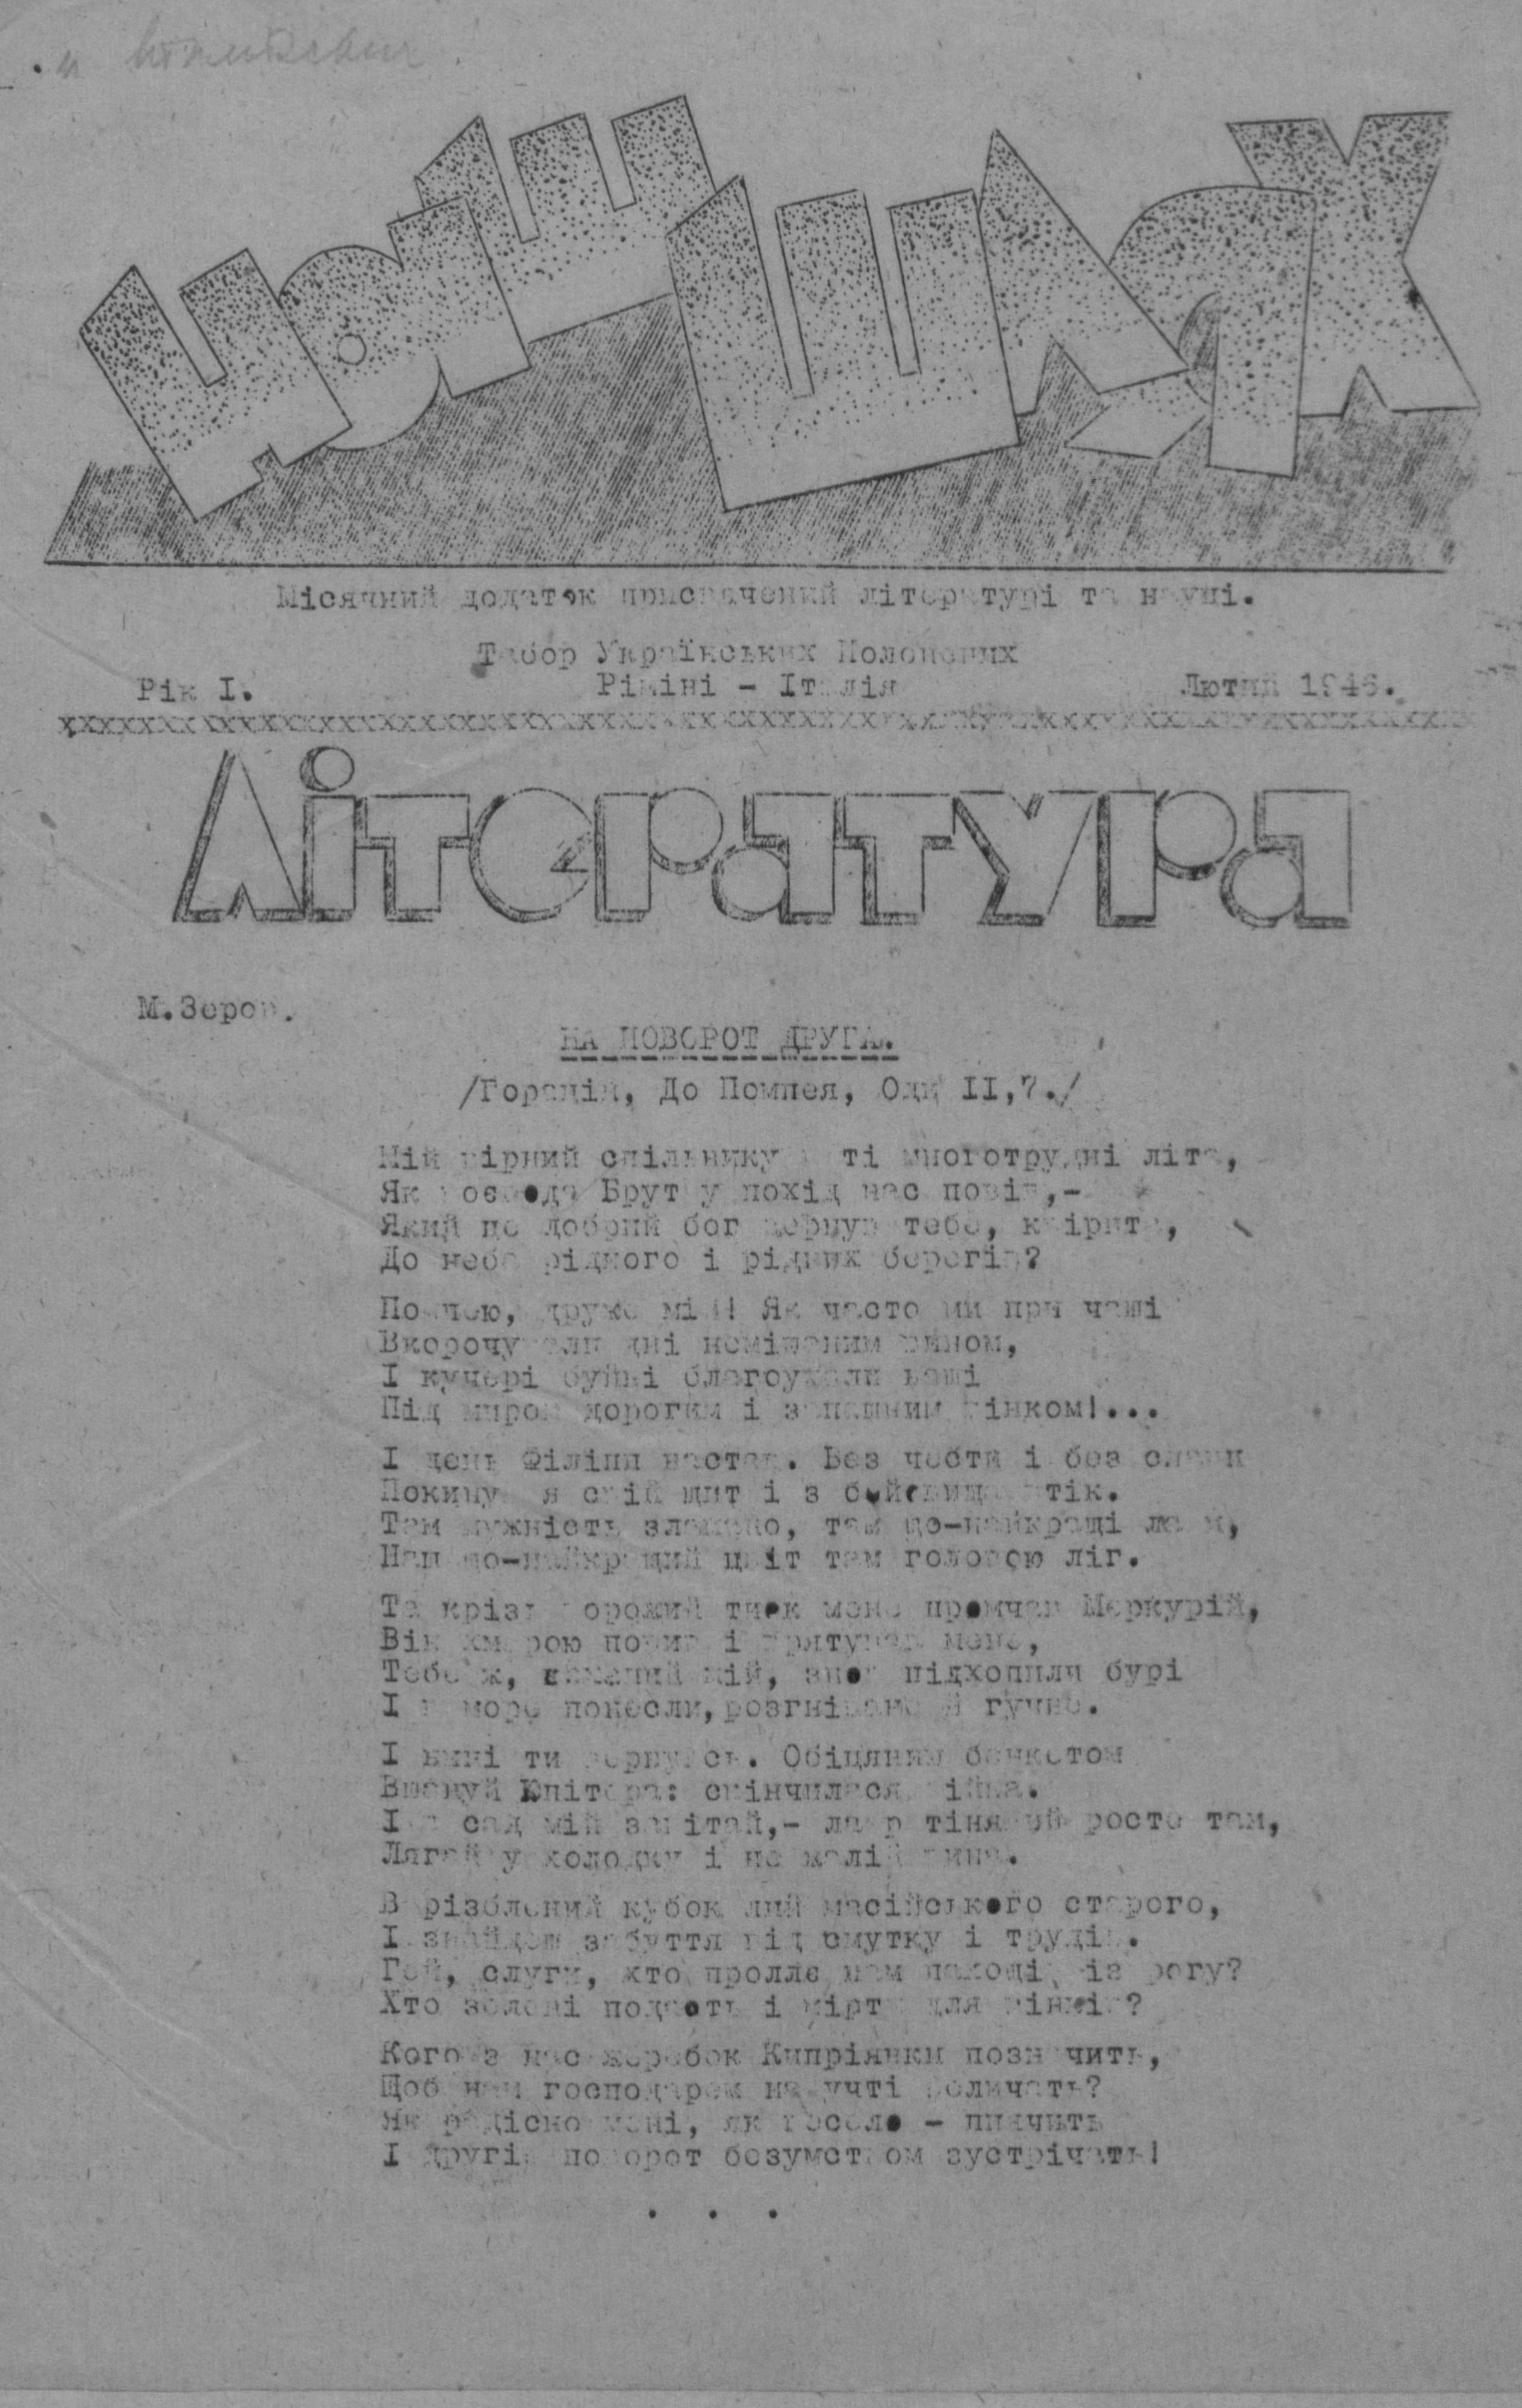 Наш шлях
Місячний додаток присвячений літературі та науці.
Табор Українських Полонених
Рік І. Ріміні - Італія Лютий 1946.
Література
М.Зеров.
НА ПОВОРОТ ДРУГА.
/Горацій, До Помпея, Оди ІІ,7./
Мій вірний спільнику в ті многотрудні літа,
Як воєвода Брут у похід нас повів,-
Який це добрий бог вернув тебе, квірите,
До неба рідного і рідних берегів?
Помпею, друже мій! Як часто ми при чаші
Вкорочували дні незмішаним вином,
І кучері буйні благоухали наші
Під миром дорогим і запашним вінком!...
І день Філіпп настав. Без чести і без слави
Покинув я свій щит і з бойовища втік.
Там мужність зламано, там що-найкращі лави,
Наш що-найкращий цвіт там головою ліг.
Та крізь ворожий тиск мене промчав Меркурій,
Він хмарою повив і врятував мене,
Тебе ж, коханий мій, знов підхопили бурі
І в море понесли,розгніване й гучне.
І нині ти вернувсь. Обіцяним банкетом
Вшануй Юпітера: скінчилася війна.
І в сад мій завітай,- лавр тінявий росте там,
Лягай у холодку і не жалій вина.
В різблений кубок лий масійського старого,
І знайдеш забуття від смутку і трудів.
Гей, слуги, хто проллє нам пахощі із рогу?
Хто зелені подасть і мірту для вінків?
Кого з нас жеребок Кипріянки позначить,
Щоб нам господарем на учті величать?
Як радісно мені, як весело - пиячить
І другів поворот безумством зустрічать!
. . .